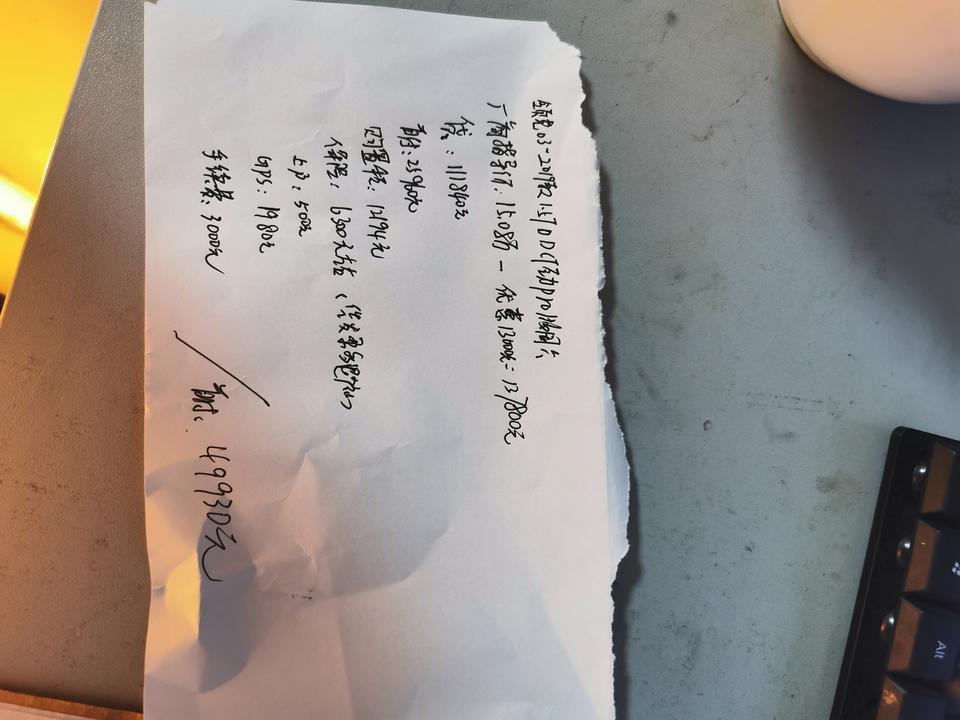 领克03-2019款 1.5TD DCT劲Pro 国六
厂商指导价: 15.08万 - 优惠13000元 = 137800元
贷: 111840元
首付: 25960元
购置税: 12194元
保险: 6300元左右
上户: 500元
GPS: 1980元
手续费: 3000元
首付: 49930元
Alt